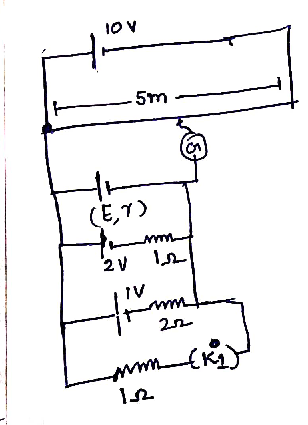 10 V
5m
G
(E, r)
2V 1Ω
1V
2Ω
(K1)
1Ω